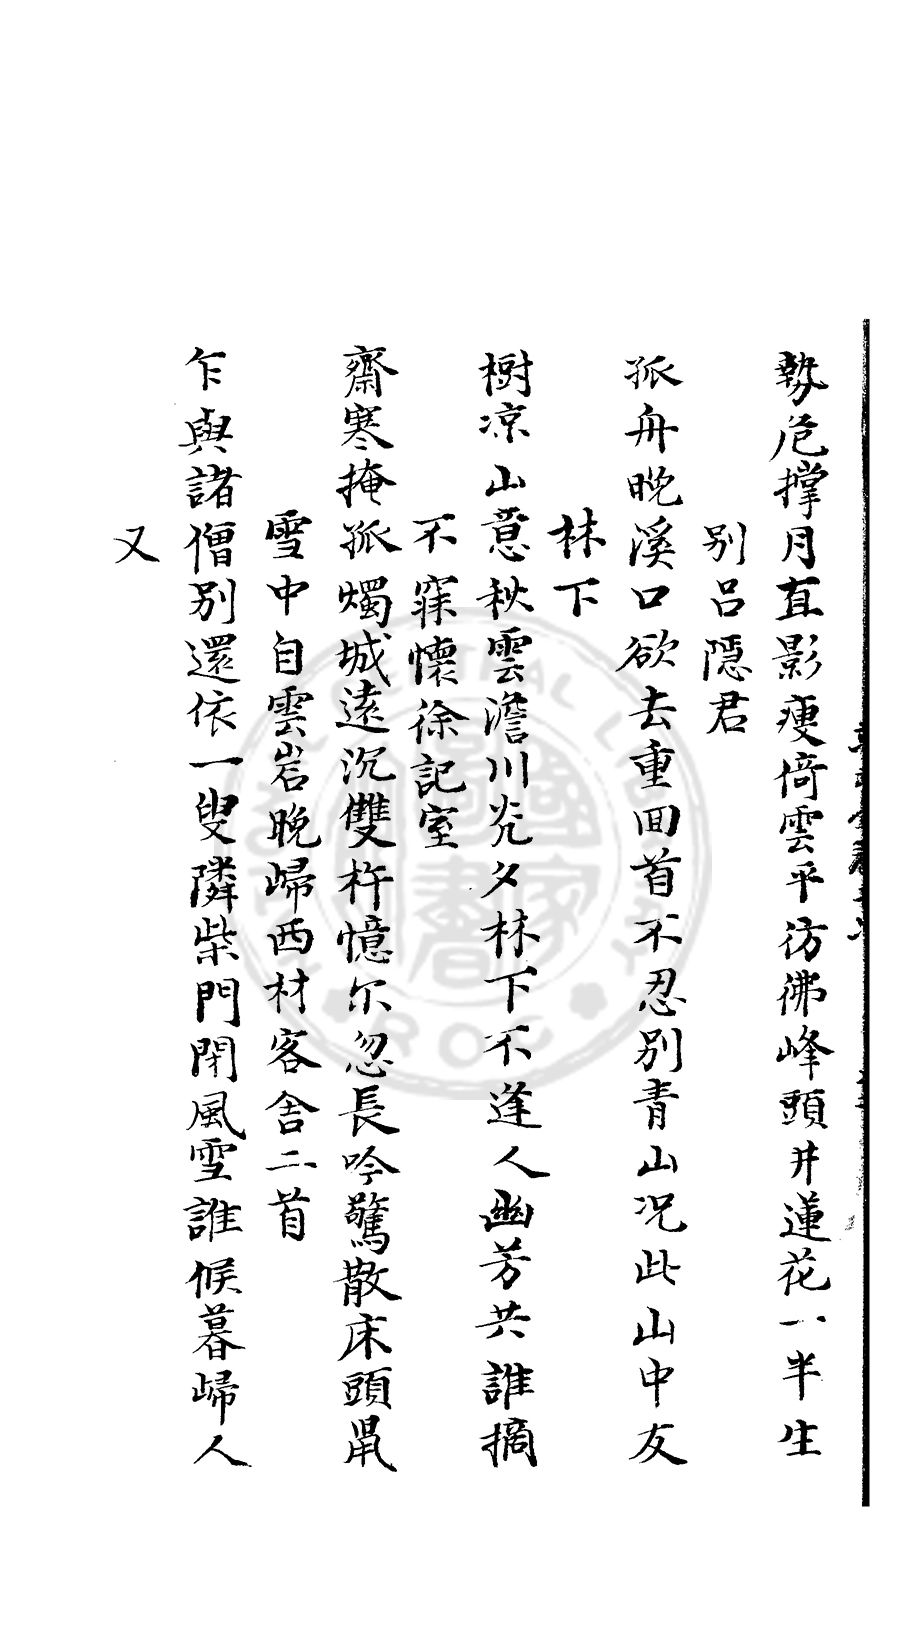 勢危撐月直影瘦倚雲平彷彿峰頭井蓮花一半生
別呂隱君
孤舟晚溪口欲去重回首不忍別青山况此山中友
林下
樹凉山意秋雲澹川光夕林下不逢人幽芳共誰摘
不寐懷徐記室
齋寒掩孤燭城遠沉雙杵憶尔忽長吟驚散床頭鼠
雪中自雲岩晚歸西材客舍二首
乍與諸僧別還依一叟隣柴門閉風雪誰候暮歸人
又
國家圖書
CENTRAL LIBRARY
ROC